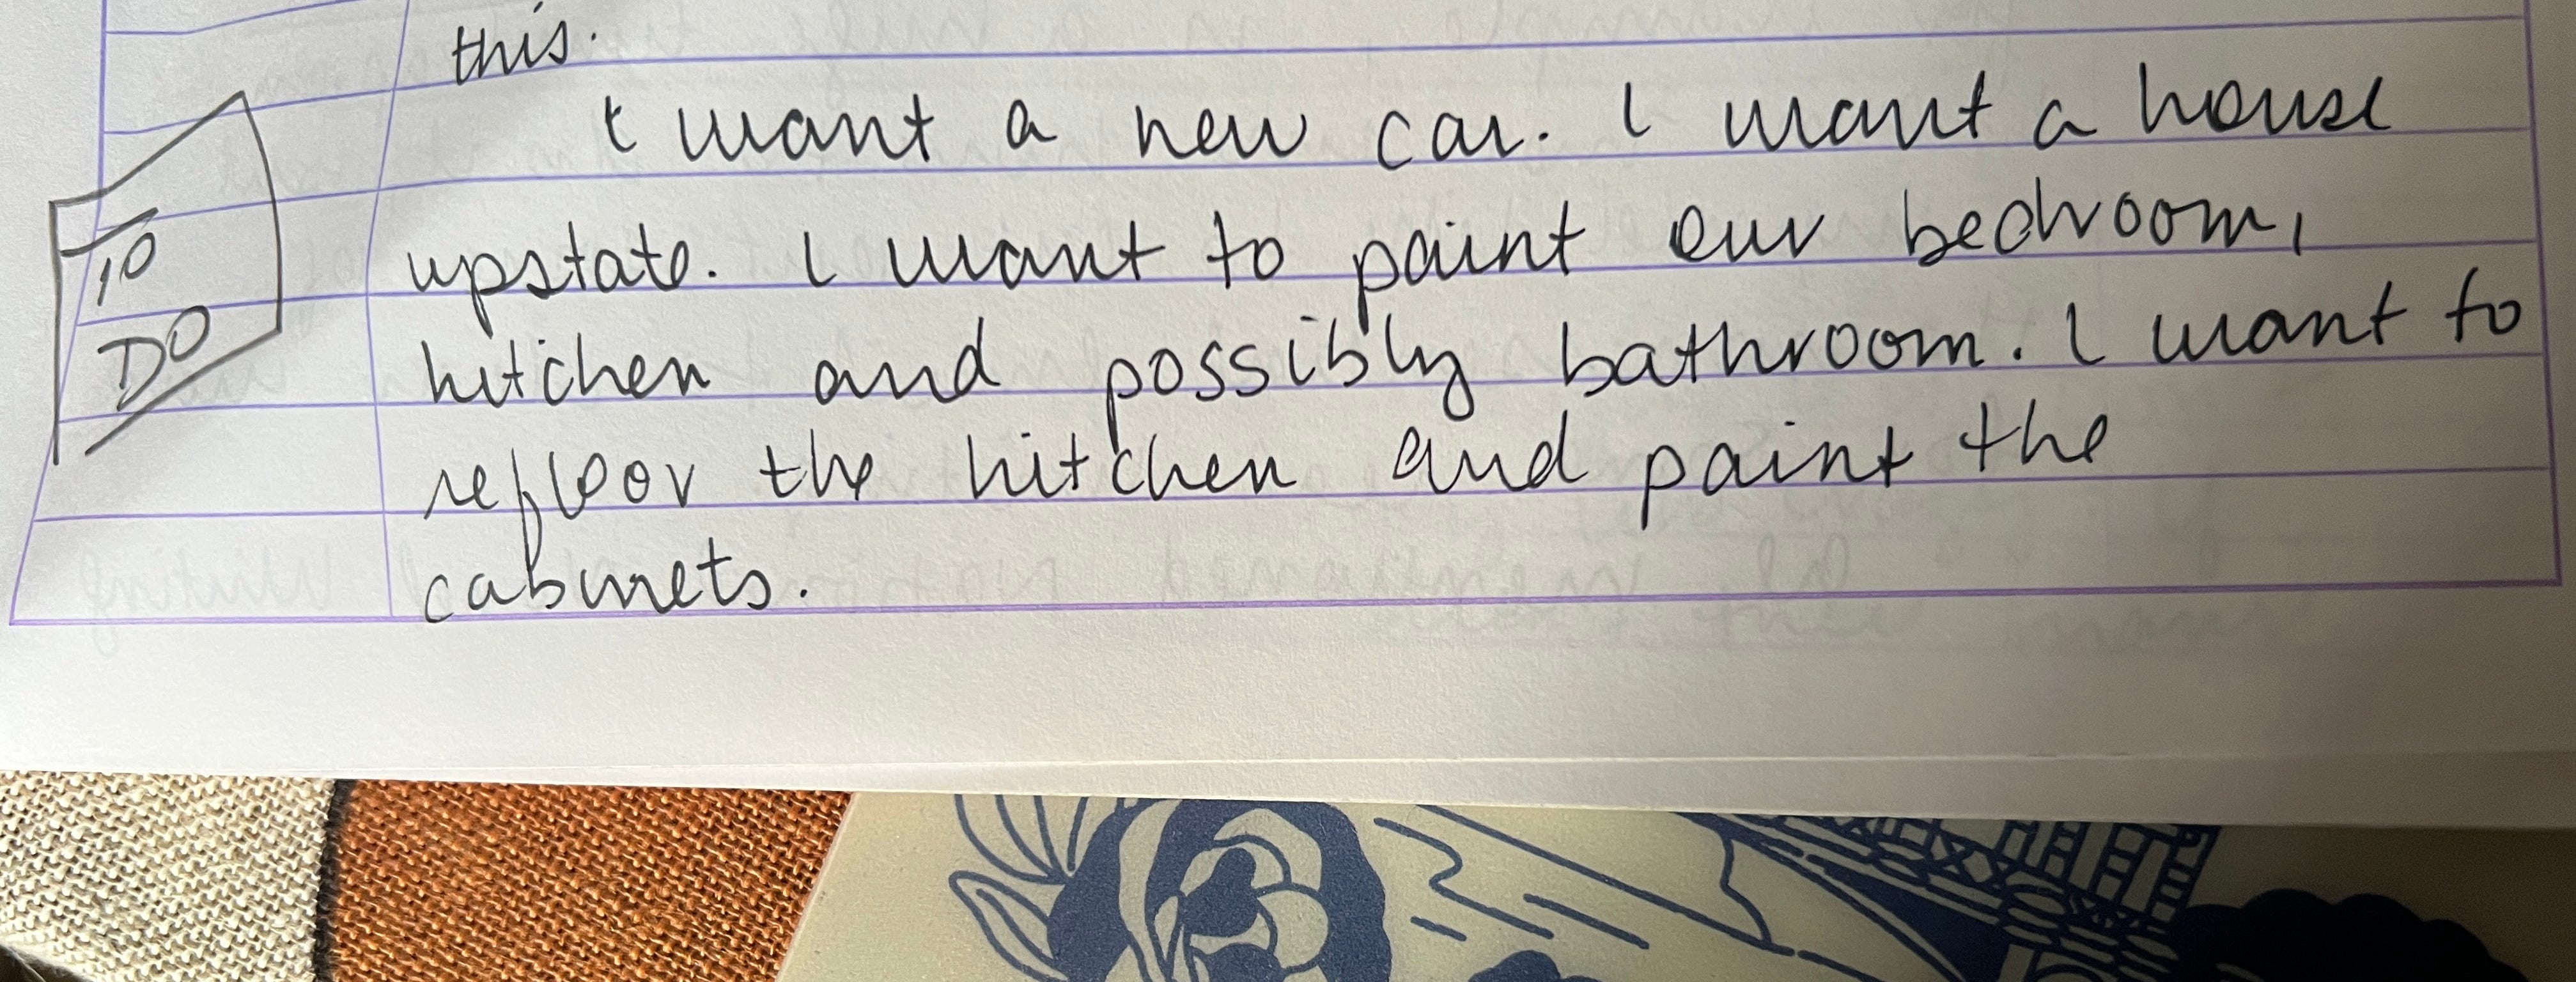 this.
I want a new car. I want a house
upstate. I want to paint our bedroom,
kitchen and possibly bathroom. I want to
refloor the kitchen and paint the
cabinets.
TO
DO